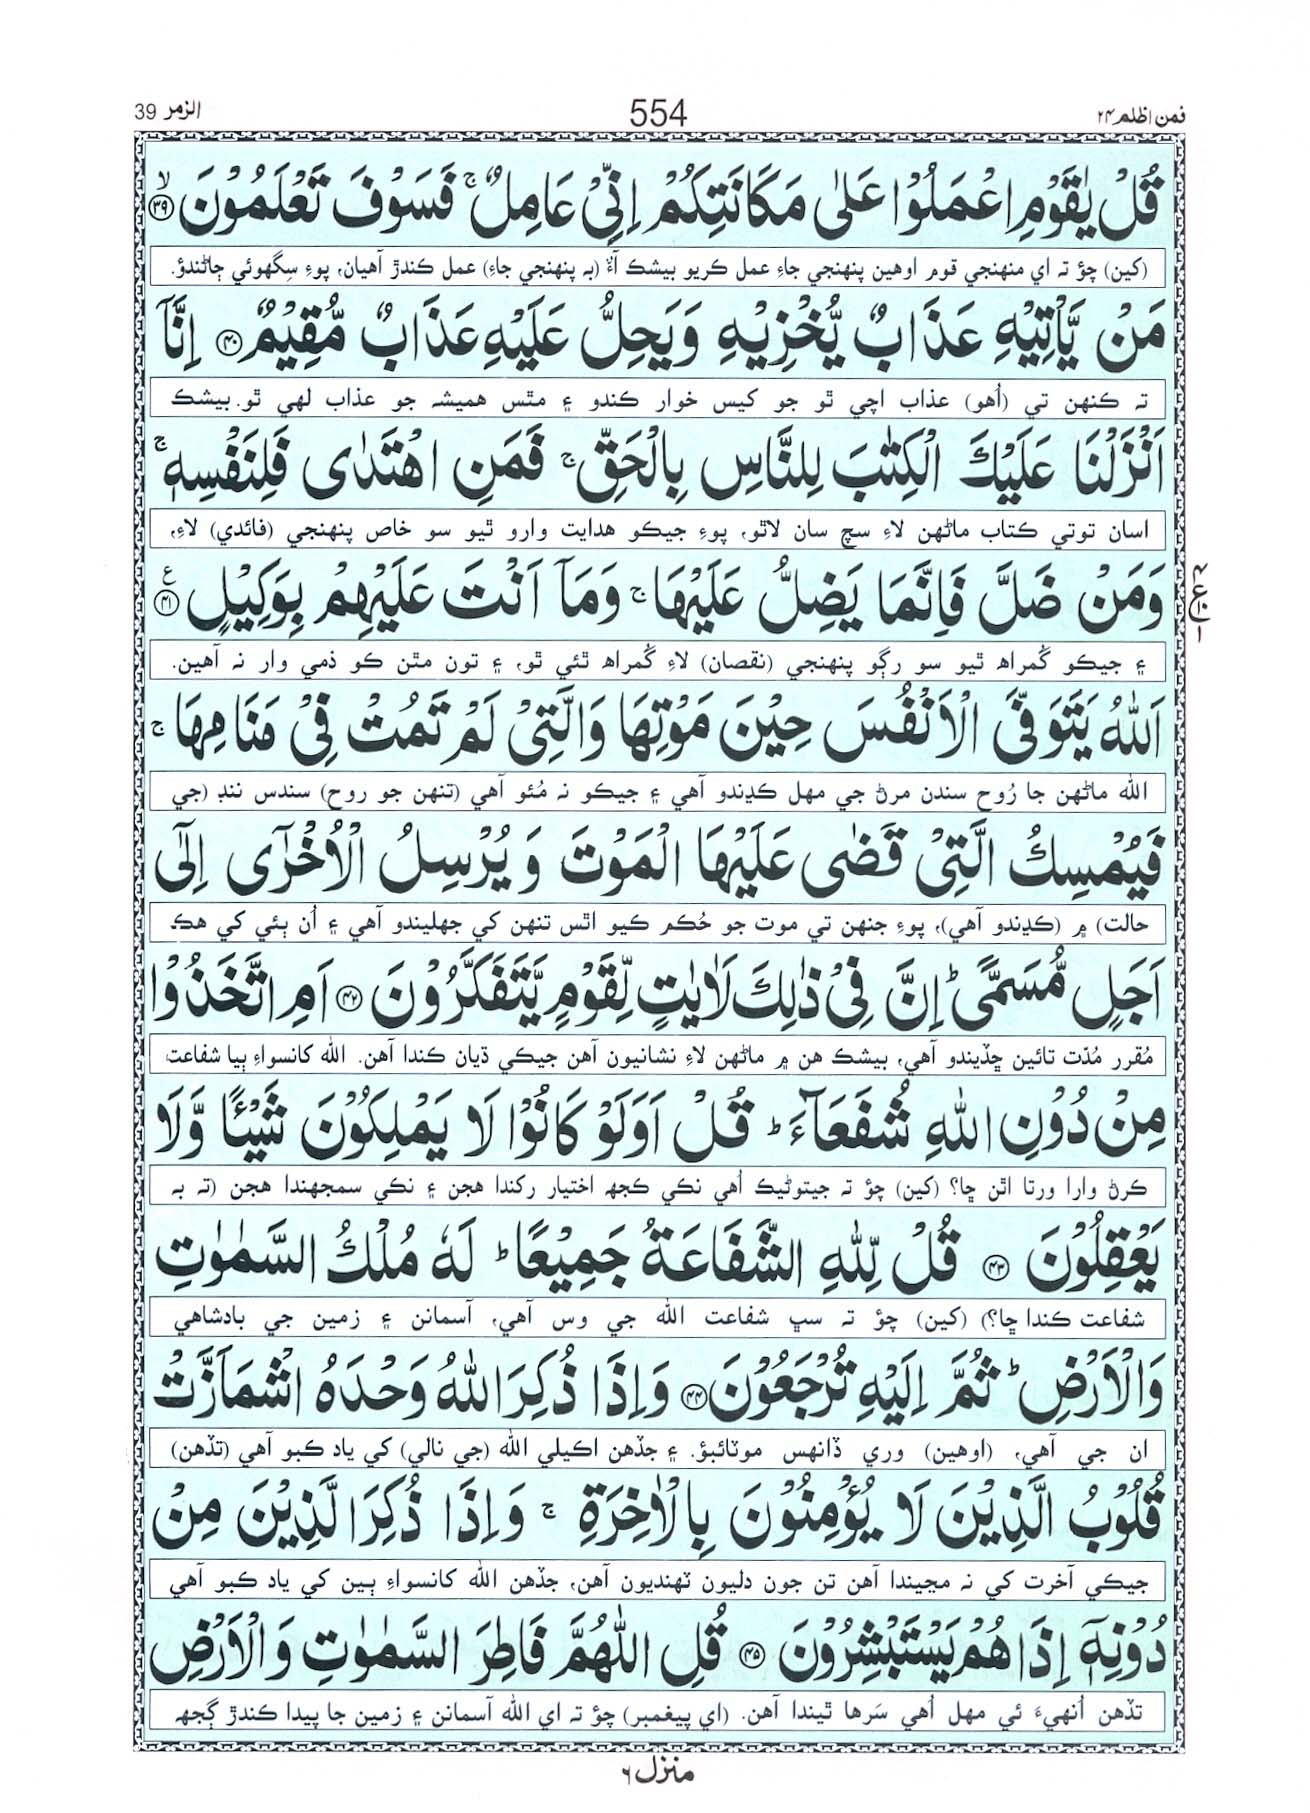 فمن اظلم ۲۴ 554 الزمر 39
قُلْ يٰقَوْمِ اعْمَلُوْا عَلٰى مَكَانَتِكُمْ اِنِّىْ عَامِلٌ ۚ فَسَوْفَ تَعْلَمُوْنَ ۙ﴿۳۹﴾
(کين) چؤ تہ اي منهنجي قوم اوهين پنهنجي جاءِ عمل ڪريو بيشڪ آءٌ (بہ پنهنجي جاءِ) عمل ڪندڙ آهيان، پوءِ سِگهوئي ڄاڻندؤ.
مَنْ يَّاْتِيْهِ عَذَابٌ يُّخْزِيْهِ وَيَحِلُّ عَلَيْهِ عَذَابٌ مُّقِيْمٌ ﴿۴۰﴾ اِنَّآ
تہ ڪنهن تي (اُهو) عذاب اچي ٿو جو کيس خوار ڪندو ۽ مٿس هميشہ جو عذاب لهي ٿو. بيشڪ
اَنْزَلْنَا عَلَيْكَ الْكِتٰبَ لِلنَّاسِ بِالْحَقِّ ۚ فَمَنِ اهْتَدٰى فَلِنَفْسِهٖ ۚ
اسان توتي ڪتاب ماڻهن لاءِ سچ سان لاٿو، پوءِ جيڪو هدايت وارو ٿيو سو خاص پنهنجي (فائدي) لاءِ،
وَمَنْ ضَلَّ فَاِنَّمَا يَضِلُّ عَلَيْهَا ۚ وَمَآ اَنْتَ عَلَيْهِمْ بِوَكِيْلٍ ﴿۴۱﴾ ع
۽ جيڪو گُمراھ ٿيو سو رڳو پنهنجي (نقصان) لاءِ گُمراھ ٿئي ٿو، ۽ تون مٿن ڪو ذمي وار نہ آهين.
اَللّٰهُ يَتَوَفَّى الْاَنْفُسَ حِيْنَ مَوْتِهَا وَالَّتِىْ لَمْ تَمُتْ فِىْ مَنَامِهَا ۚ
الله ماڻهن جا رُوح سندن مرڻ جي مهل ڪڍندو آهي ۽ جيڪو نہ مُئو آهي (تنهن جو روح) سندس ننڊ (جي
فَيُمْسِكُ الَّتِىْ قَضٰى عَلَيْهَا الْمَوْتَ وَ يُرْسِلُ الْاُخْرٰٓى اِلٰٓى
حالت) ۾ (ڪڍندو آهي)، پوءِ جنهن تي موت جو حُڪم ڪيو اٿس تنهن کي جهليندو آهي ۽ اُن ٻئي کي هڪ
اَجَلٍ مُّسَمًّى ؕ اِنَّ فِىْ ذٰلِكَ لَاٰيٰتٍ لِّقَوْمٍ يَّتَفَكَّرُوْنَ ﴿۴۲﴾ اَمِ اتَّخَذُوْا
مُقرر مُدّت تائين ڇڏيندو آهي، بيشڪ هن ۾ ماڻهن لاءِ نشانيون آهن جيڪي ڌيان ڪندا آهن. الله کانسواءِ ٻيا شفاعت
مِنْ دُوْنِ اللّٰهِ شُفَعَآءَ ؕ قُلْ اَوَلَوْ كَانُوْا لَا يَمْلِكُوْنَ شَيْـًٔا وَّلَا
ڪرڻ وارا ورتا اٿن ڇا؟ (کين) چؤ تہ جيتوڻيڪ اُهي نڪي ڪجهہ اختيار رکندا هجن ۽ نڪي سمجهندا هجن (تہ بہ
يَعْقِلُوْنَ ﴿۴۳﴾ قُلْ لِّلّٰهِ الشَّفَاعَةُ جَمِيْعًا ؕ لَهٗ مُلْكُ السَّمٰوٰتِ
شفاعت ڪندا ڇا؟) (کين) چؤ تہ سڀ شفاعت الله جي وس آهي، آسمانن ۽ زمين جي بادشاهي
وَالْاَرْضِ ؕ ثُمَّ اِلَيْهِ تُرْجَعُوْنَ ﴿۴۴﴾ وَاِذَا ذُكِرَ اللّٰهُ وَحْدَهُ اشْمَاَزَّتْ
ان جي آهي، (اوهين) وري ڏانهس موٽائبؤ. ۽ جڏهن اڪيلي الله (جي نالي) کي ياد ڪبو آهي (تڏهن)
قُلُوْبُ الَّذِيْنَ لَا يُؤْمِنُوْنَ بِالْاٰخِرَةِ ۚ وَاِذَا ذُكِرَ الَّذِيْنَ مِنْ
جيڪي آخرت کي نہ مڃيندا آهن تن جون دليون ٽهنديون آهن، جڏهن الله کانسواءِ ٻين کي ياد ڪبو آهي
دُوْنِهٖٓ اِذَا هُمْ يَسْتَبْشِرُوْنَ ﴿۴۵﴾ قُلِ اللّٰهُمَّ فَاطِرَ السَّمٰوٰتِ وَالْاَرْضِ
تڏهن اُنهيءَ ئي مهل اُهي سَرها ٿيندا آهن. (اي پيغمبر) چؤ تہ اي الله آسمانن ۽ زمين جا پيدا ڪندڙ ڳُجهہ
منزل ۶